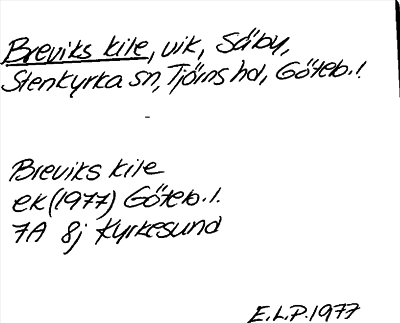 Breviks kile, vik, Säby,
Stenkyrka sn, Tjörns hd, Göteb.l.
Breviks kile
ek (1977) Göteb.l.
7A 8j Kyrkesund
E.L.P.1977